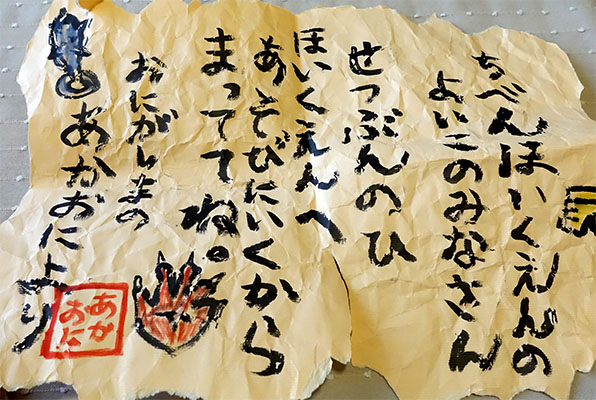 ちべんほいくえんの
よいこのみなさん
せつぶんのひ
ほいくえんへ
あそびにいくから
まっててね。
おにがしまの
あかおにより
あか
おに